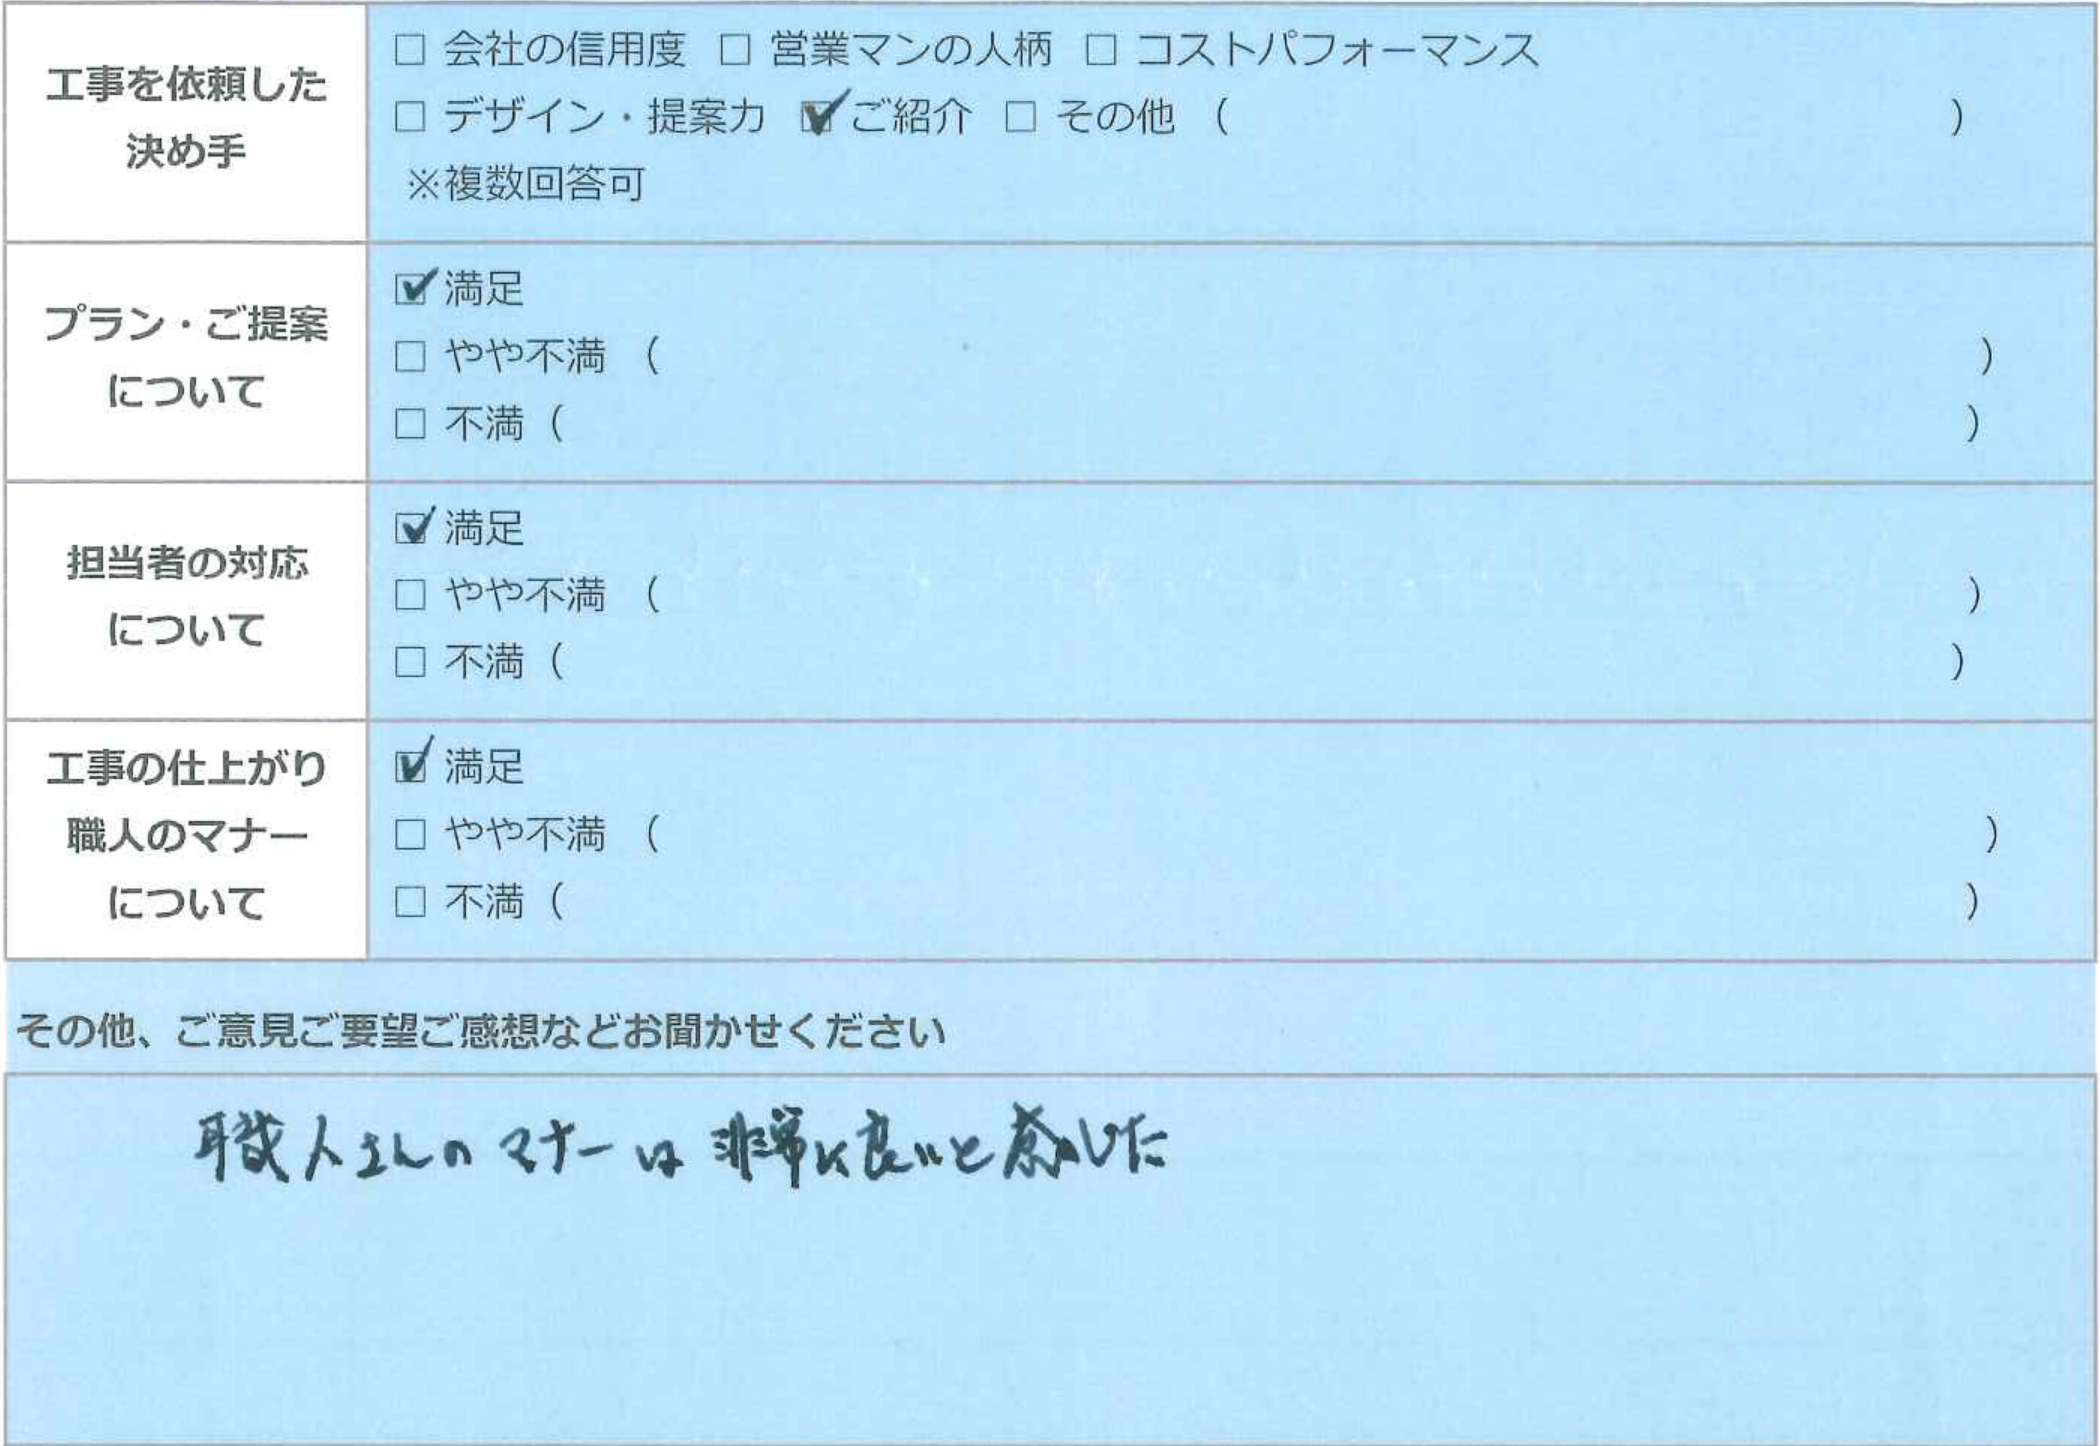 工事を依頼した
決め手
□ 会社の信用度 □ 営業マンの人柄 □ コストパフォーマンス
□ デザイン・提案力 ☑ ご紹介 □ その他 ( )
※複数回答可
プラン・ご提案
について
☑ 満足
□ やや不満 ( )
□ 不満 ( )
担当者の対応
について
☑ 満足
□ やや不満 ( )
□ 不満 ( )
工事の仕上がり
職人のマナー
について
☑ 満足
□ やや不満 ( )
□ 不満 ( )
その他、ご意見ご要望ご感想などお聞かせください
職人さんのマナーは非常に良いと感じした